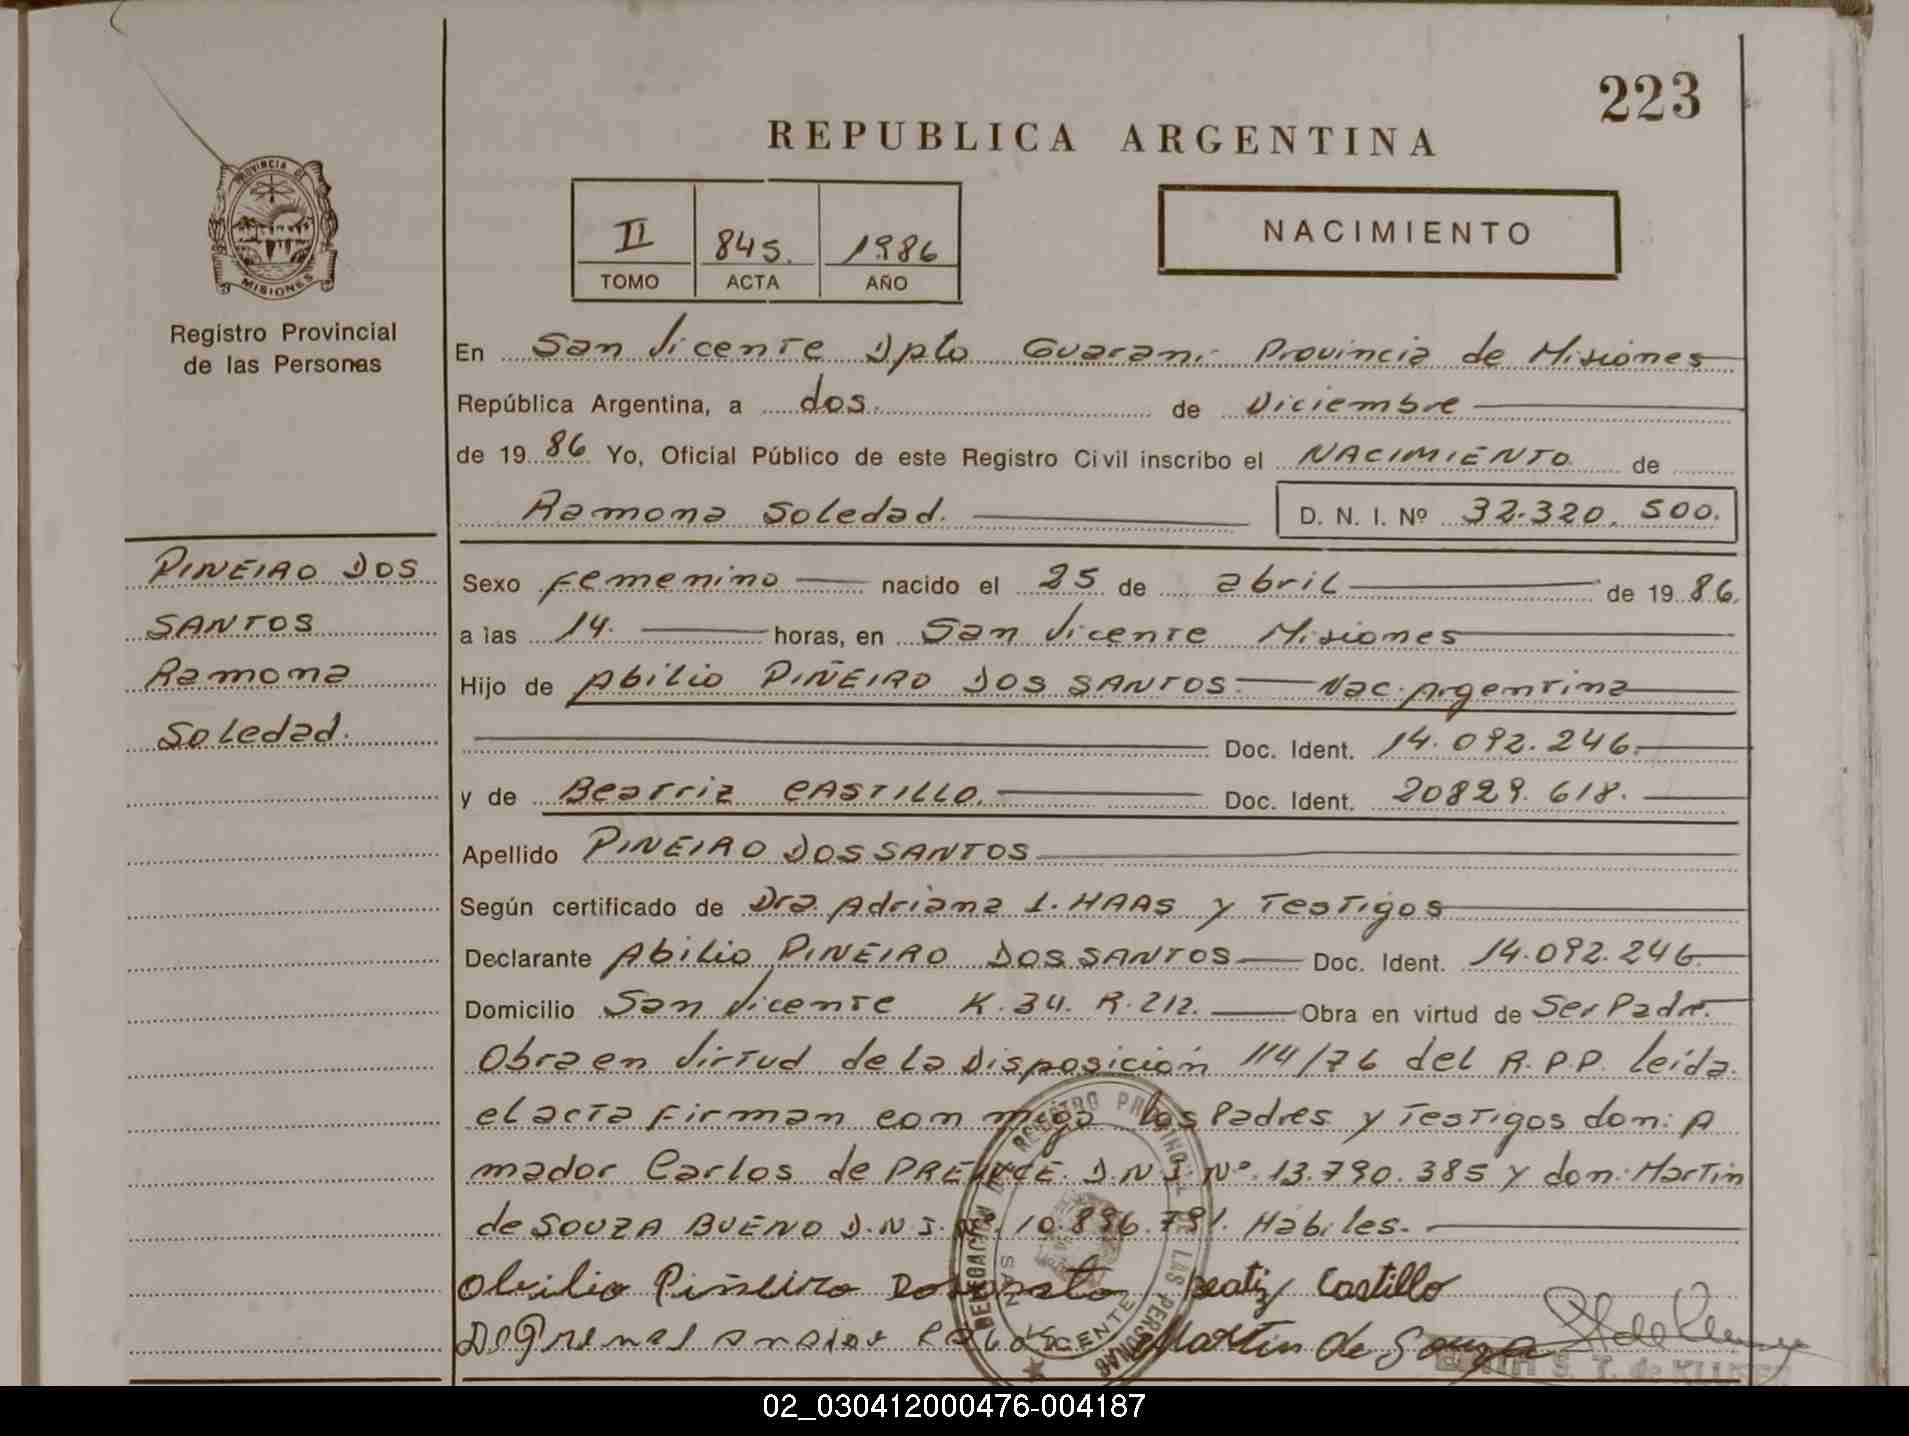 223
REPUBLICA ARGENTINA
PROVINCIA DE
MISIONES
Registro Provincial
de las Personas
II 845. 1986
TOMO ACTA AÑO
NACIMIENTO
En San Vicente Dpto Guarani Provincia de Misiones
República Argentina, a dos. de Diciembre
de 19 86 Yo, Oficial Público de este Registro Civil inscribo el NACIMIENTO de
Ramona Soledad. D. N. I. Nº 32.320.500.
PINEIRO DOS
SANTOS
Ramona
Soledad.
Sexo Femenino nacido el 25 de abril de 19 86.
a las 14. horas, en San Vicente Misiones
Hijo de Abilio PIÑEIRO DOS SANTOS. Nac. Argentina
Doc. Ident. 14.092.246.
y de Beatriz CASTILLO. Doc. Ident. 20829.618.
Apellido PINEIRO DOS SANTOS
Según certificado de Dra. Adriana I. HAAS y Testigos
Declarante Abilio PINEIRO DOS SANTOS Doc. Ident. 14.092.246.
Domicilio San Vicente K. 34. R. 212. Obra en virtud de Ser Padre.
Obra en Virtud de la Disposición 114/76 del R.P.P. leída.
el acta Firman con migo los Padres y Testigos don: A
mador Carlos de D.N.I. Nº. 13.790.385 y don: Martin
de SOUZA BUENO D.N.I. Nº. 10.896.791. Hábiles.
Abilio Piñeiro Dos Santos Beatiz Castillo
Martin de Souza
DELEGACION REGISTRO PROVINCIAL DE LAS PERSONAS
SAN VICENTE
S. T. de
02_030412000476-004187